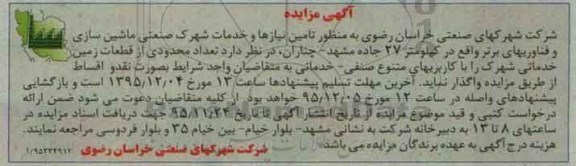 آگهی مزایده
شرکت شهرکهای صنعتی خراسان رضوی به منظور تامین نیازها و خدمات شهرک صنعتی ماشین سازی
و فناوریهای برتر واقع در کیلومتر ۲۷ جاده مشهد - چناران، در نظر دارد تعداد محدودی از قطعات زمین
خدماتی شهرک را با کاربریهای متنوع صنفی - خدماتی به متقاضیان واجد شرایط بصورت نقد و اقساط
از طریق مزایده واگذار نماید. آخرین مهلت تسلیم پیشنهادها ساعت ۱۳ مورخ ۱۳۹۵/۱۲/۰۴ است و بازگشایی
پیشنهادهای واصله در ساعت ۱۲ مورخ ۹۵/۱۲/۰۵ خواهد بود. از کلیه متقاضیان دعوت می شود ضمن ارائه
درخواست کتبی و قید موضوع مزایده از تاریخ انتشار آگهی تا تاریخ ۹۵/۱۱/۲۴ جهت دریافت اسناد مزایده در
ساعتهای ۸ تا ۱۳ به دبیرخانه شرکت به نشانی مشهد - بلوار خیام - بین خیام ۳۵ و بلوار فردوسی مراجعه نمایند.
هزینه درج آگهی به عهده برندگان مزایده می باشد.
شرکت شهرکهای صنعتی خراسان رضوی